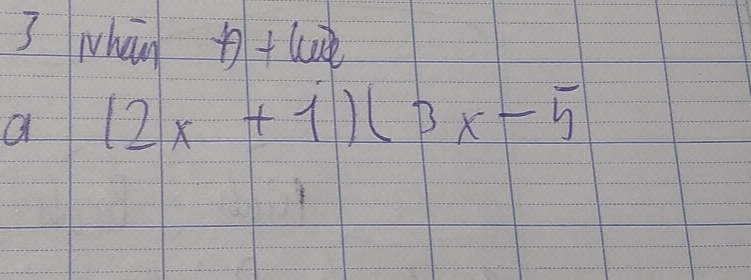 3 Nhân đ thức
a (2x + 1)(3x - 5